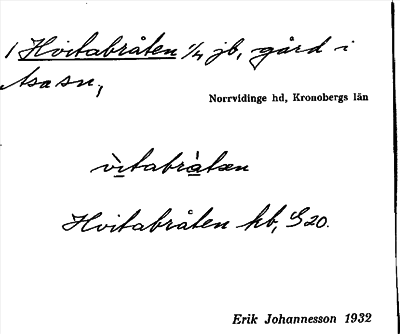 1 Hvitabråten 1/4 jb, gård i
Asa sn,
Norrvidinge hd, Kronobergs län
vìtabràtæn
Hvitabråten hb, S 20.
Erik Johannesson 1932